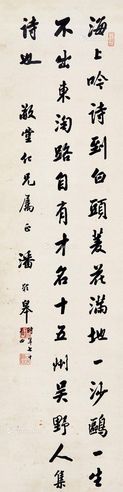 海上吟詩到白頭蘆花滿地一沙鷗一生
不出東淘路自有才名十五州吳野人集
詩也
敬堂仁兄屬正 潘齡皋
時年七十